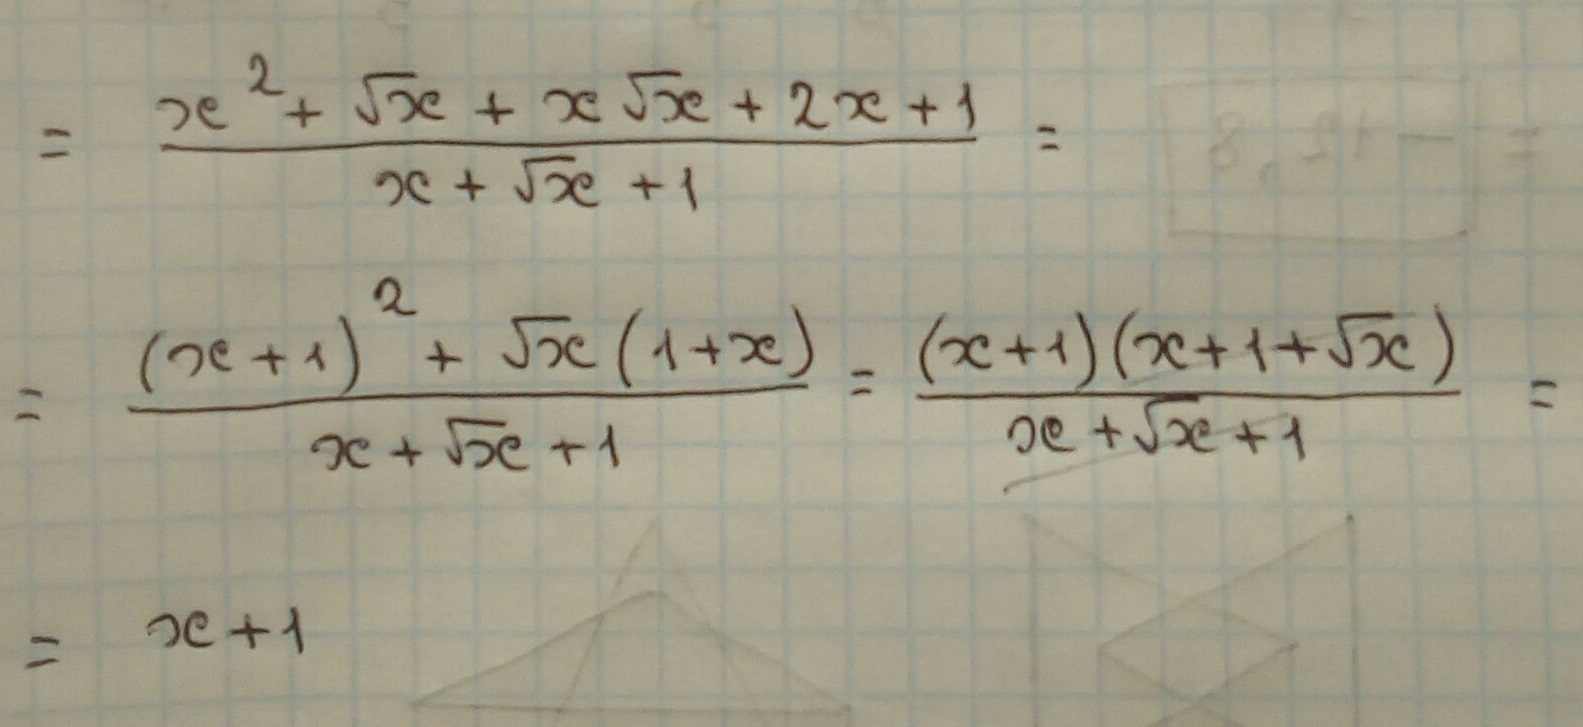 = (x² + √x + x√x + 2x + 1)/(x + √x + 1) =
= ((x+1)² + √x(1+x))/(x + √x + 1) = ((x+1)(x+1+√x))/(x + √x + 1) =
= x + 1